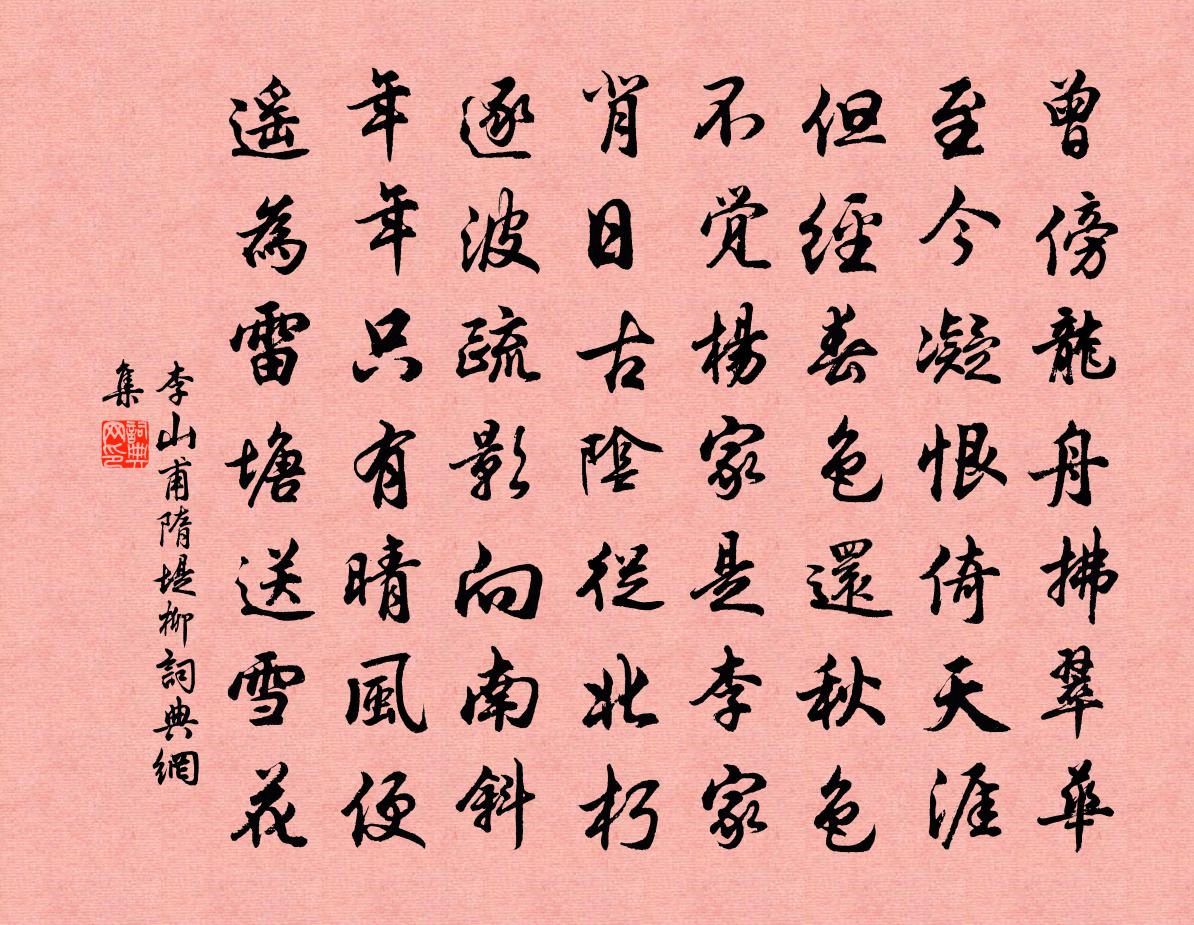 曾傍龍舟拂翠華
至今凝恨倚天涯
但經春色還秋色
不觉楊家是李家
背日古陰從北朽
逐波疏影向南斜
年年只有晴風便
遥為雷塘送雪花
李山甫隋堤柳詞典網
集
詞典网印